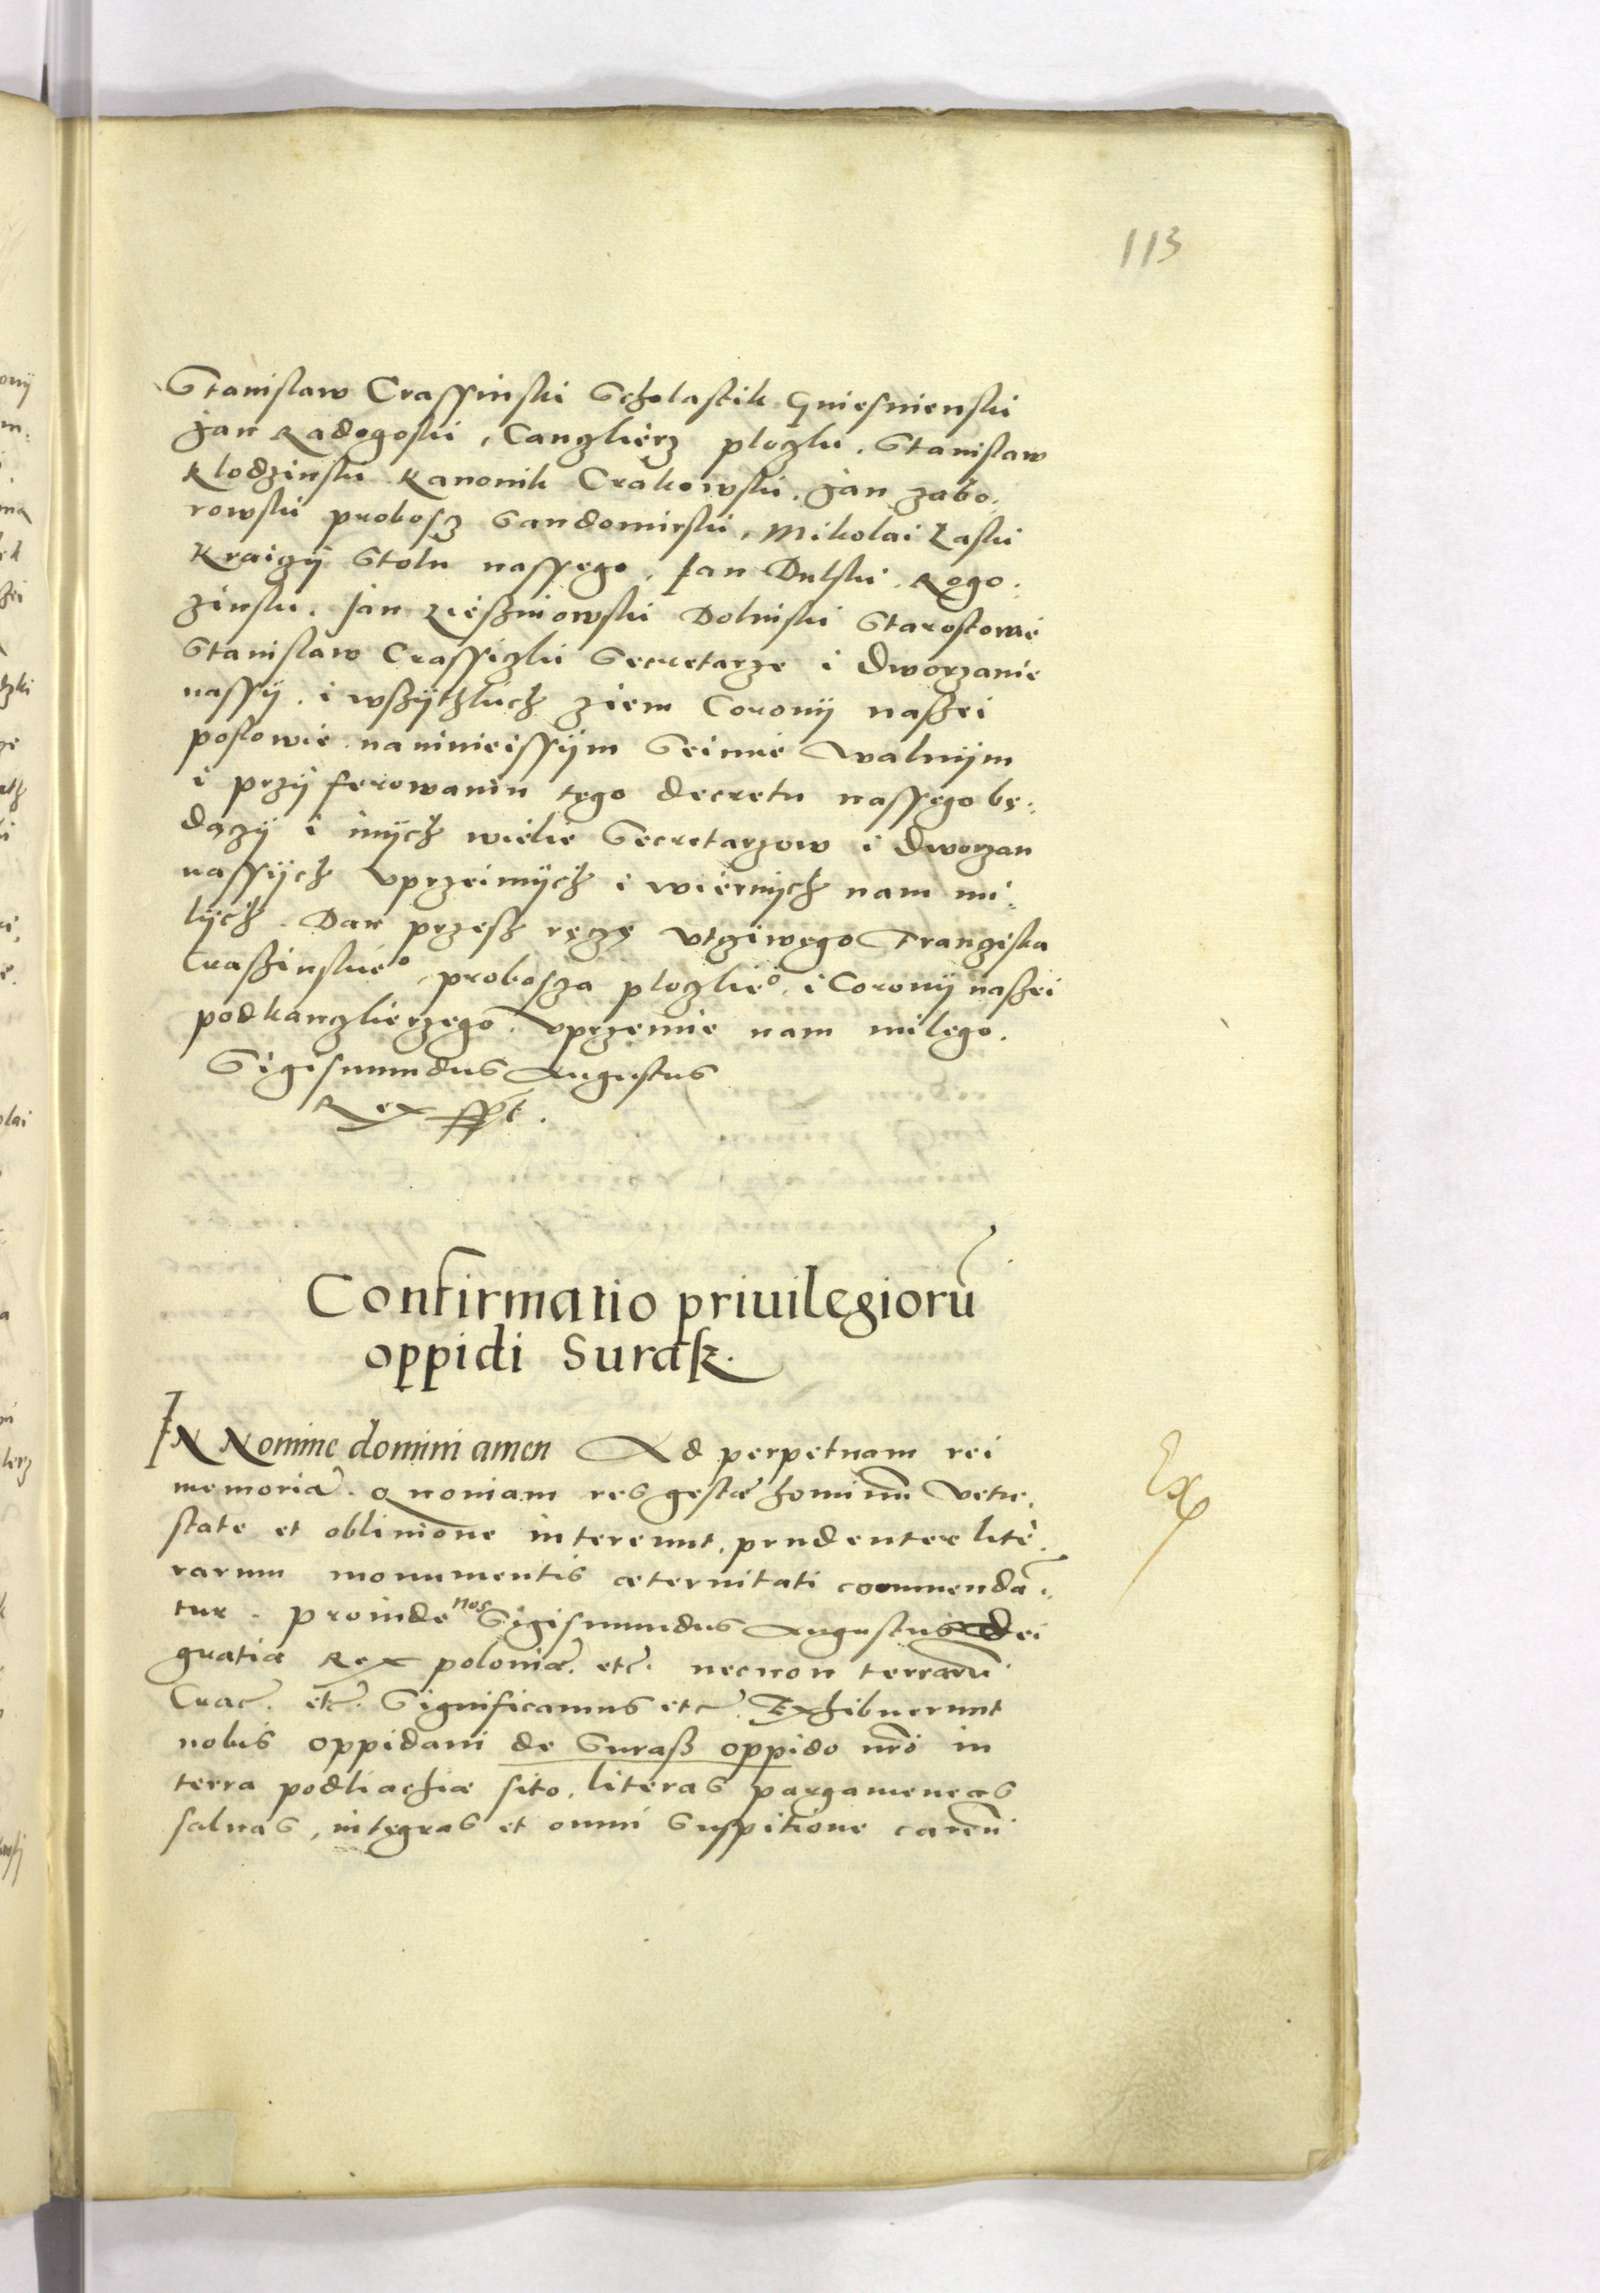 113
Stanislaw Crassinski Scholastik Gniesnienski
Jan Radogoski, Canzlierz ploczki. Stanislaw
Klodzinski Kanonik Crakowski. Jan Zabo-
rowski probosz Sandomirski, Mikolai Laski
Kraiczy Stolu nassego. Jan Dulski Rogo-
zinski. Jan Lieszniowski Dolinski Starostowie
Stanislaw Crassiczki Secretarze i dworzanie
nassy. i wszytzkich ziem Corony naszei
poslowie naninieissym Seimie walnym
i przy ferowaniu tego decretu nassego bę-
dączy i inych wielie Secretarzow i dworzan
nassych vprzeimych i wiernych nam mi-
lych. Dan przesz ręczę vtcziwego Francziska
Craszinskieo probosza ploczkieo. i Corony naszei
podkanzlierzego. vprzemie nam milego.
Sigismundus Augustus
Rex sspt.
Confirmatio priuilegiorū
oppidi Surasz.
IN Nomine domini amen Ad perpetuam rei
memoriā. Quoniam res gestæ hominum vetu-
state et obliuione intereunt, prudenter lite-
rarum monumentis æternitati commendā-
tur. Proinde nos Sigismundus Augustus Dei
gratia Rex poloniæ. etc. necnon terrarū
Crac. etc. Significamus etc. Exhibuerunt
nobis oppidani de Surasz oppido nrō in
terra podliachiæ sito, literas pargameneas
saluas, integras et omni suspitione caren
Ex